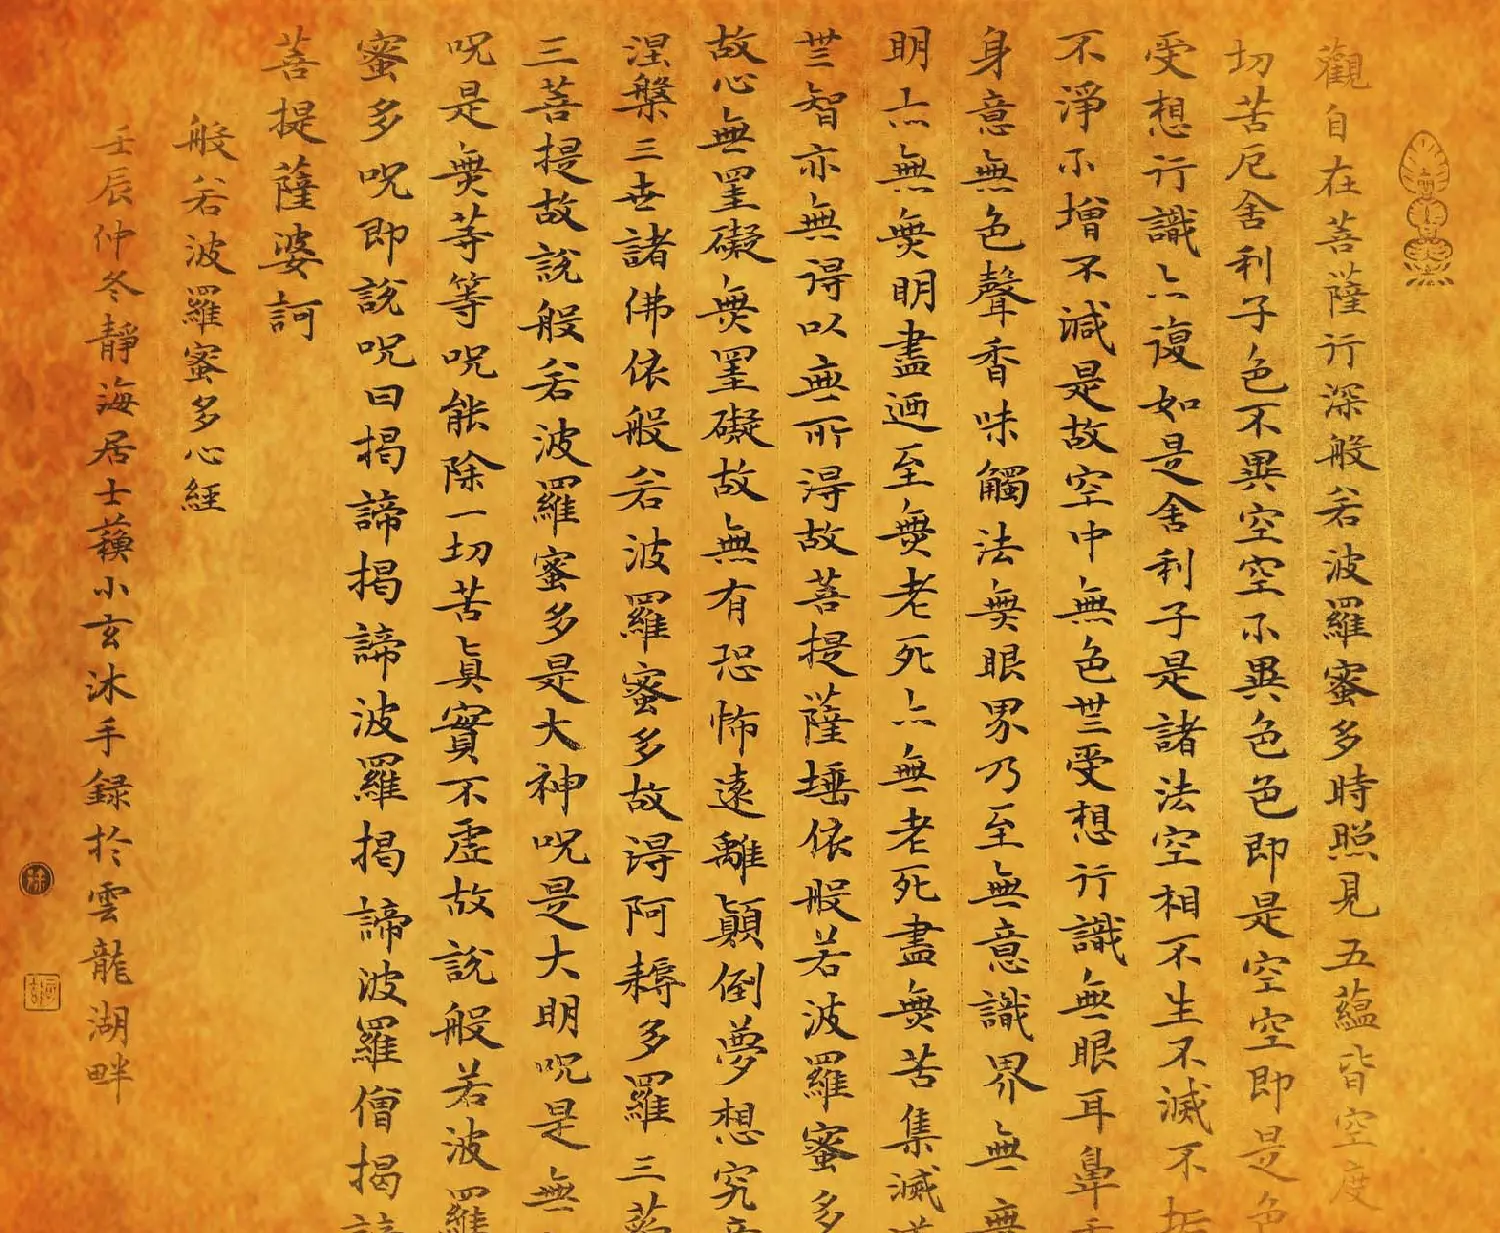 觀自在菩薩行深般若波羅蜜多時照見五蘊皆空度
切苦厄舍利子色不異空空不異色色即是空空即是色
受想行識亦復如是舍利子是諸法空相不生不滅不垢
不淨不增不減是故空中無色無受想行識無眼耳鼻舌
身意無色聲香味觸法無眼界乃至無意識界無無
明亦無無明盡迺至無老死亦無老死盡無苦集滅道
無智亦無得以無所得故菩提薩埵依般若波羅蜜多
故心無罣礙無罣礙故無有恐怖遠離顛倒夢想究竟
涅槃三世諸佛依般若波羅蜜多故得阿耨多羅三藐
三菩提故說般若波羅蜜多是大神呪是大明呪是無
呪是無等等呪能除一切苦真實不虛故說般若波羅
蜜多呪即說呪曰揭諦揭諦波羅揭諦波羅僧揭諦
菩提薩婆訶
般若波羅蜜多心經
壬辰仲冬靜海居士蘓小玄沐手録於雲龍湖畔